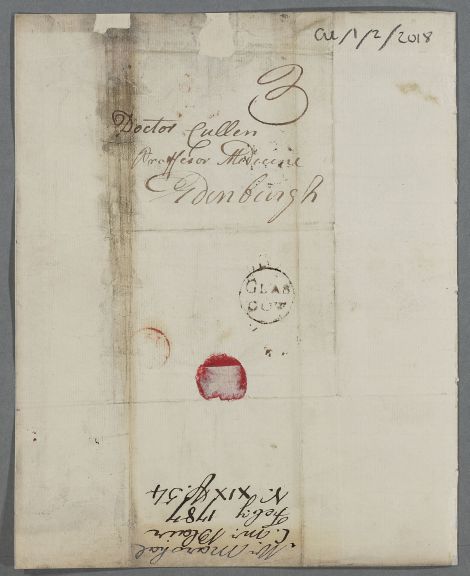 CUL/1/2/2018
3
Doctor Cullen
Professor Medicine
Edenburgh
GLAS
GOW
Mr. Marshal
C. Mr. Blair
Feby 1787
N. XIX p. 54